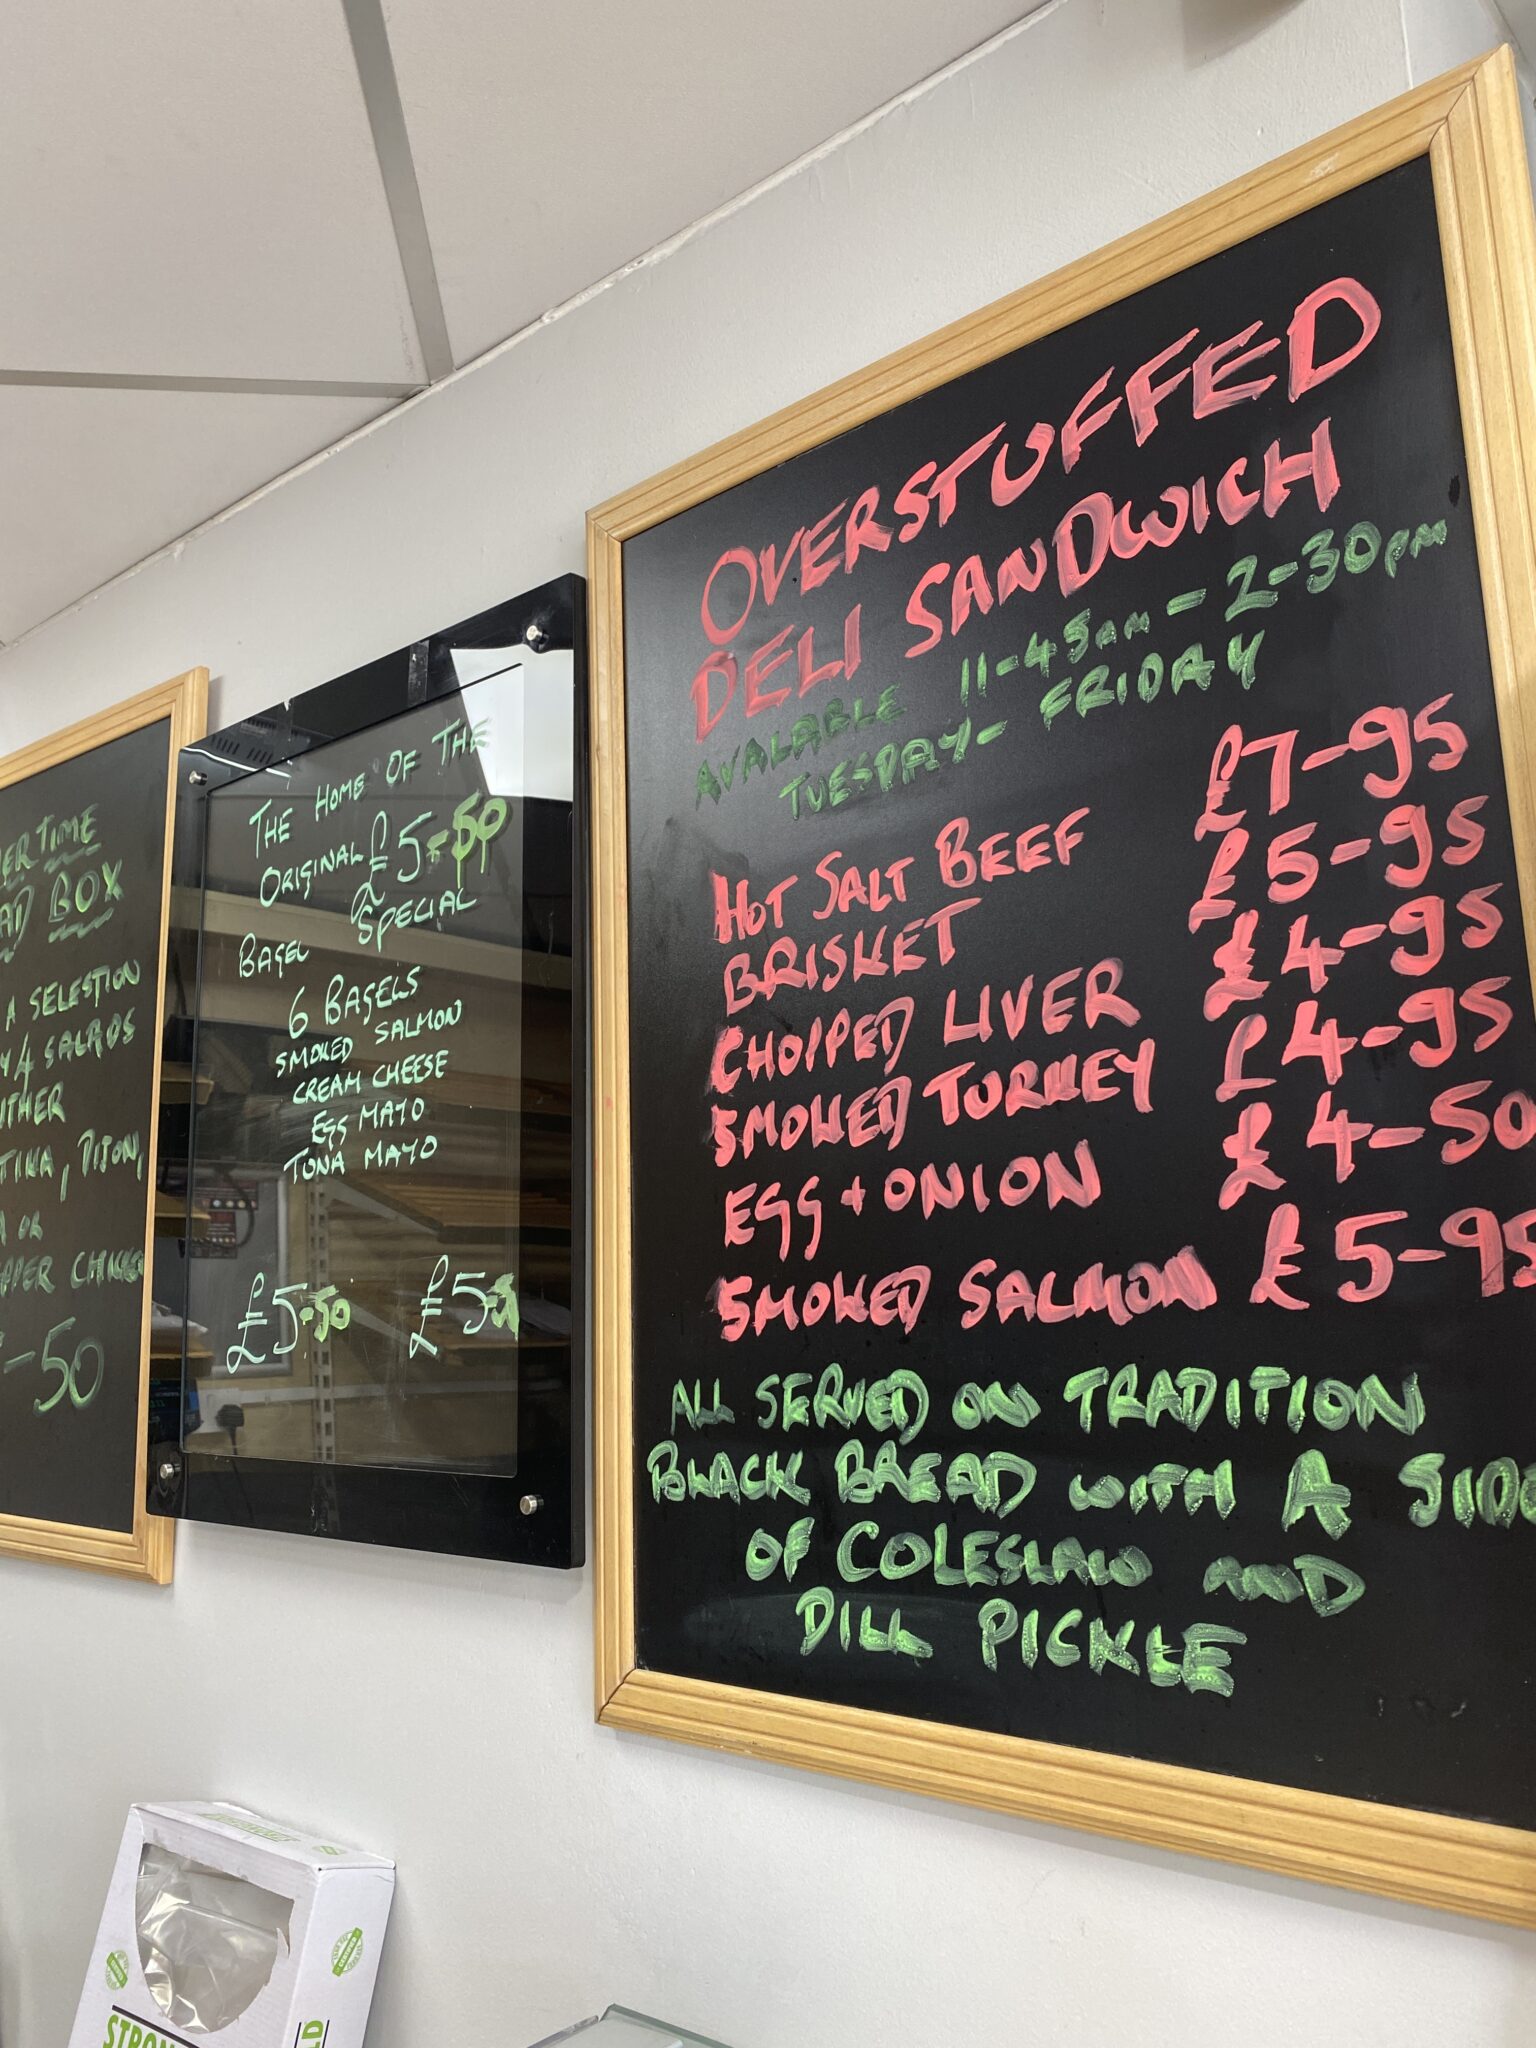 TIME
BOX
A SELESTION
4 SALADS
DIJON,
OR
-50
THE HOME OF THE
ORIGINAL £5-50
BAGEL SPECIAL
6 BAGELS
SMOKED SALMON
CREAM CHEESE
EGG MAYO
TUNA MAYO
£5-50 £5-50
OVERSTUFFED
DELI SANDWICH
AVALABLE 11-45am - 2-30pm
TUESDAY - FRIDAY
HOT SALT BEEF £7-95
BRISKET £5-95
CHOPPED LIVER £4-95
SMOKED TURKEY £4-95
EGG + ONION £4-50
SMOKED SALMON £5-95
ALL SERVED ON TRADITION
BLACK BREAD WITH A SIDE
OF COLESLAW AND
DILL PICKLE